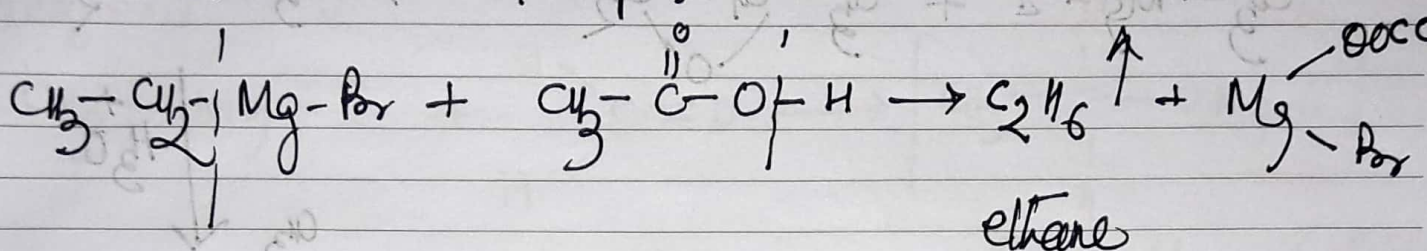 O
CH3-CH2-Mg-Br + CH3-C-O-H → C2H6 ↑ + Mg OOCC
Br
ethane